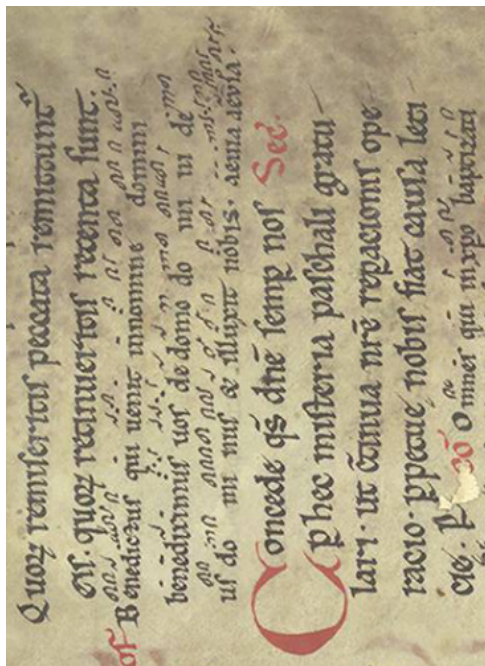 Quoꝝ remiseritis peccata remittunt̃
eis · quoꝝ retinueritis retenta sunt ·
of Benedictus qui uenit innomine domini
benediximus uos dedomo do mi ni de
us do mi nus & illuxit nobis · aeuia aeuia ·
Concede qs̃ dñe semꝑ nos Sec̃ ·
ꝑ hec misteria paschali gratu
lari · ut ctinua nr̃e reparationis ope
ratio · ꝑpetue nobis fiat causa leti
cie · ꝑ cō Omnes qui inxpo baptizati